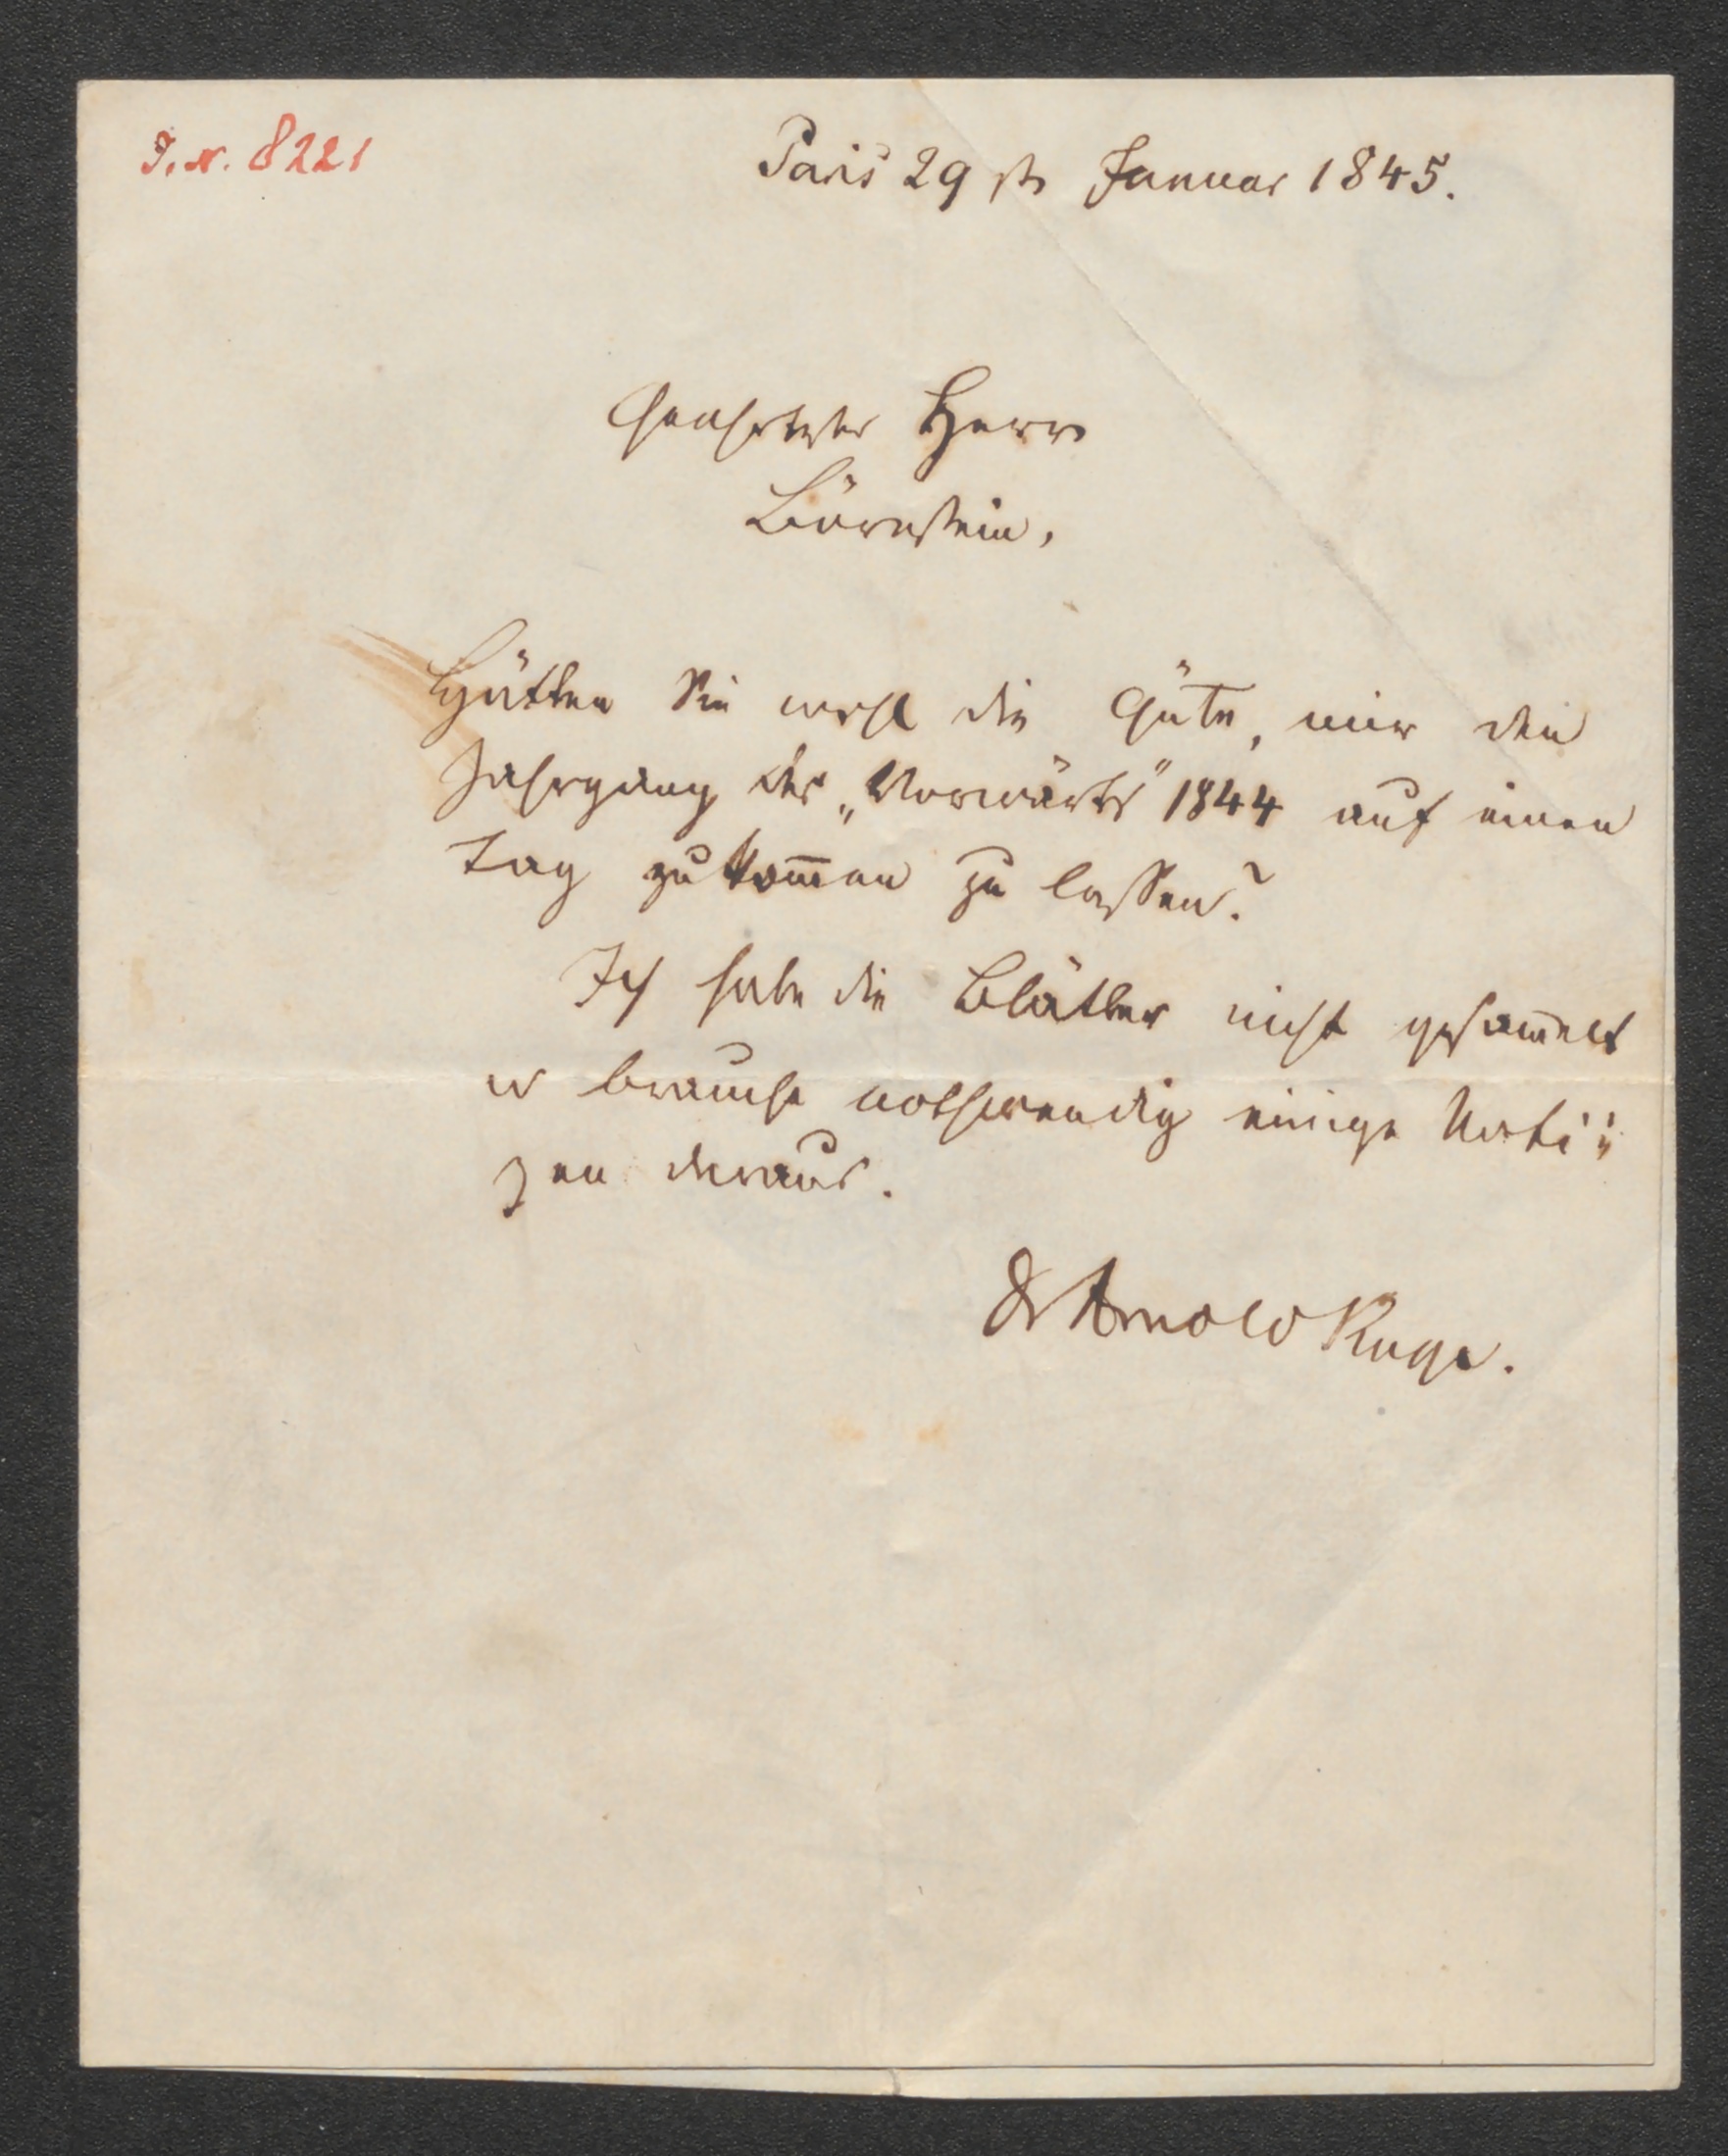 I. N. 8221
Paris 29 st Januar 1845.
Geehrtester Herr
Börnstein,
Hätten Sie wohl die Güte, mir den
Jahrgang des „Vorwärts" 1844 auf einen
Tag zukom̅en zu lassen?
Ich habe die Blätter nicht gesam̅elt
u brauche nothwendig einige Noti-
zen daraus.
Dr Arnold Ruge.